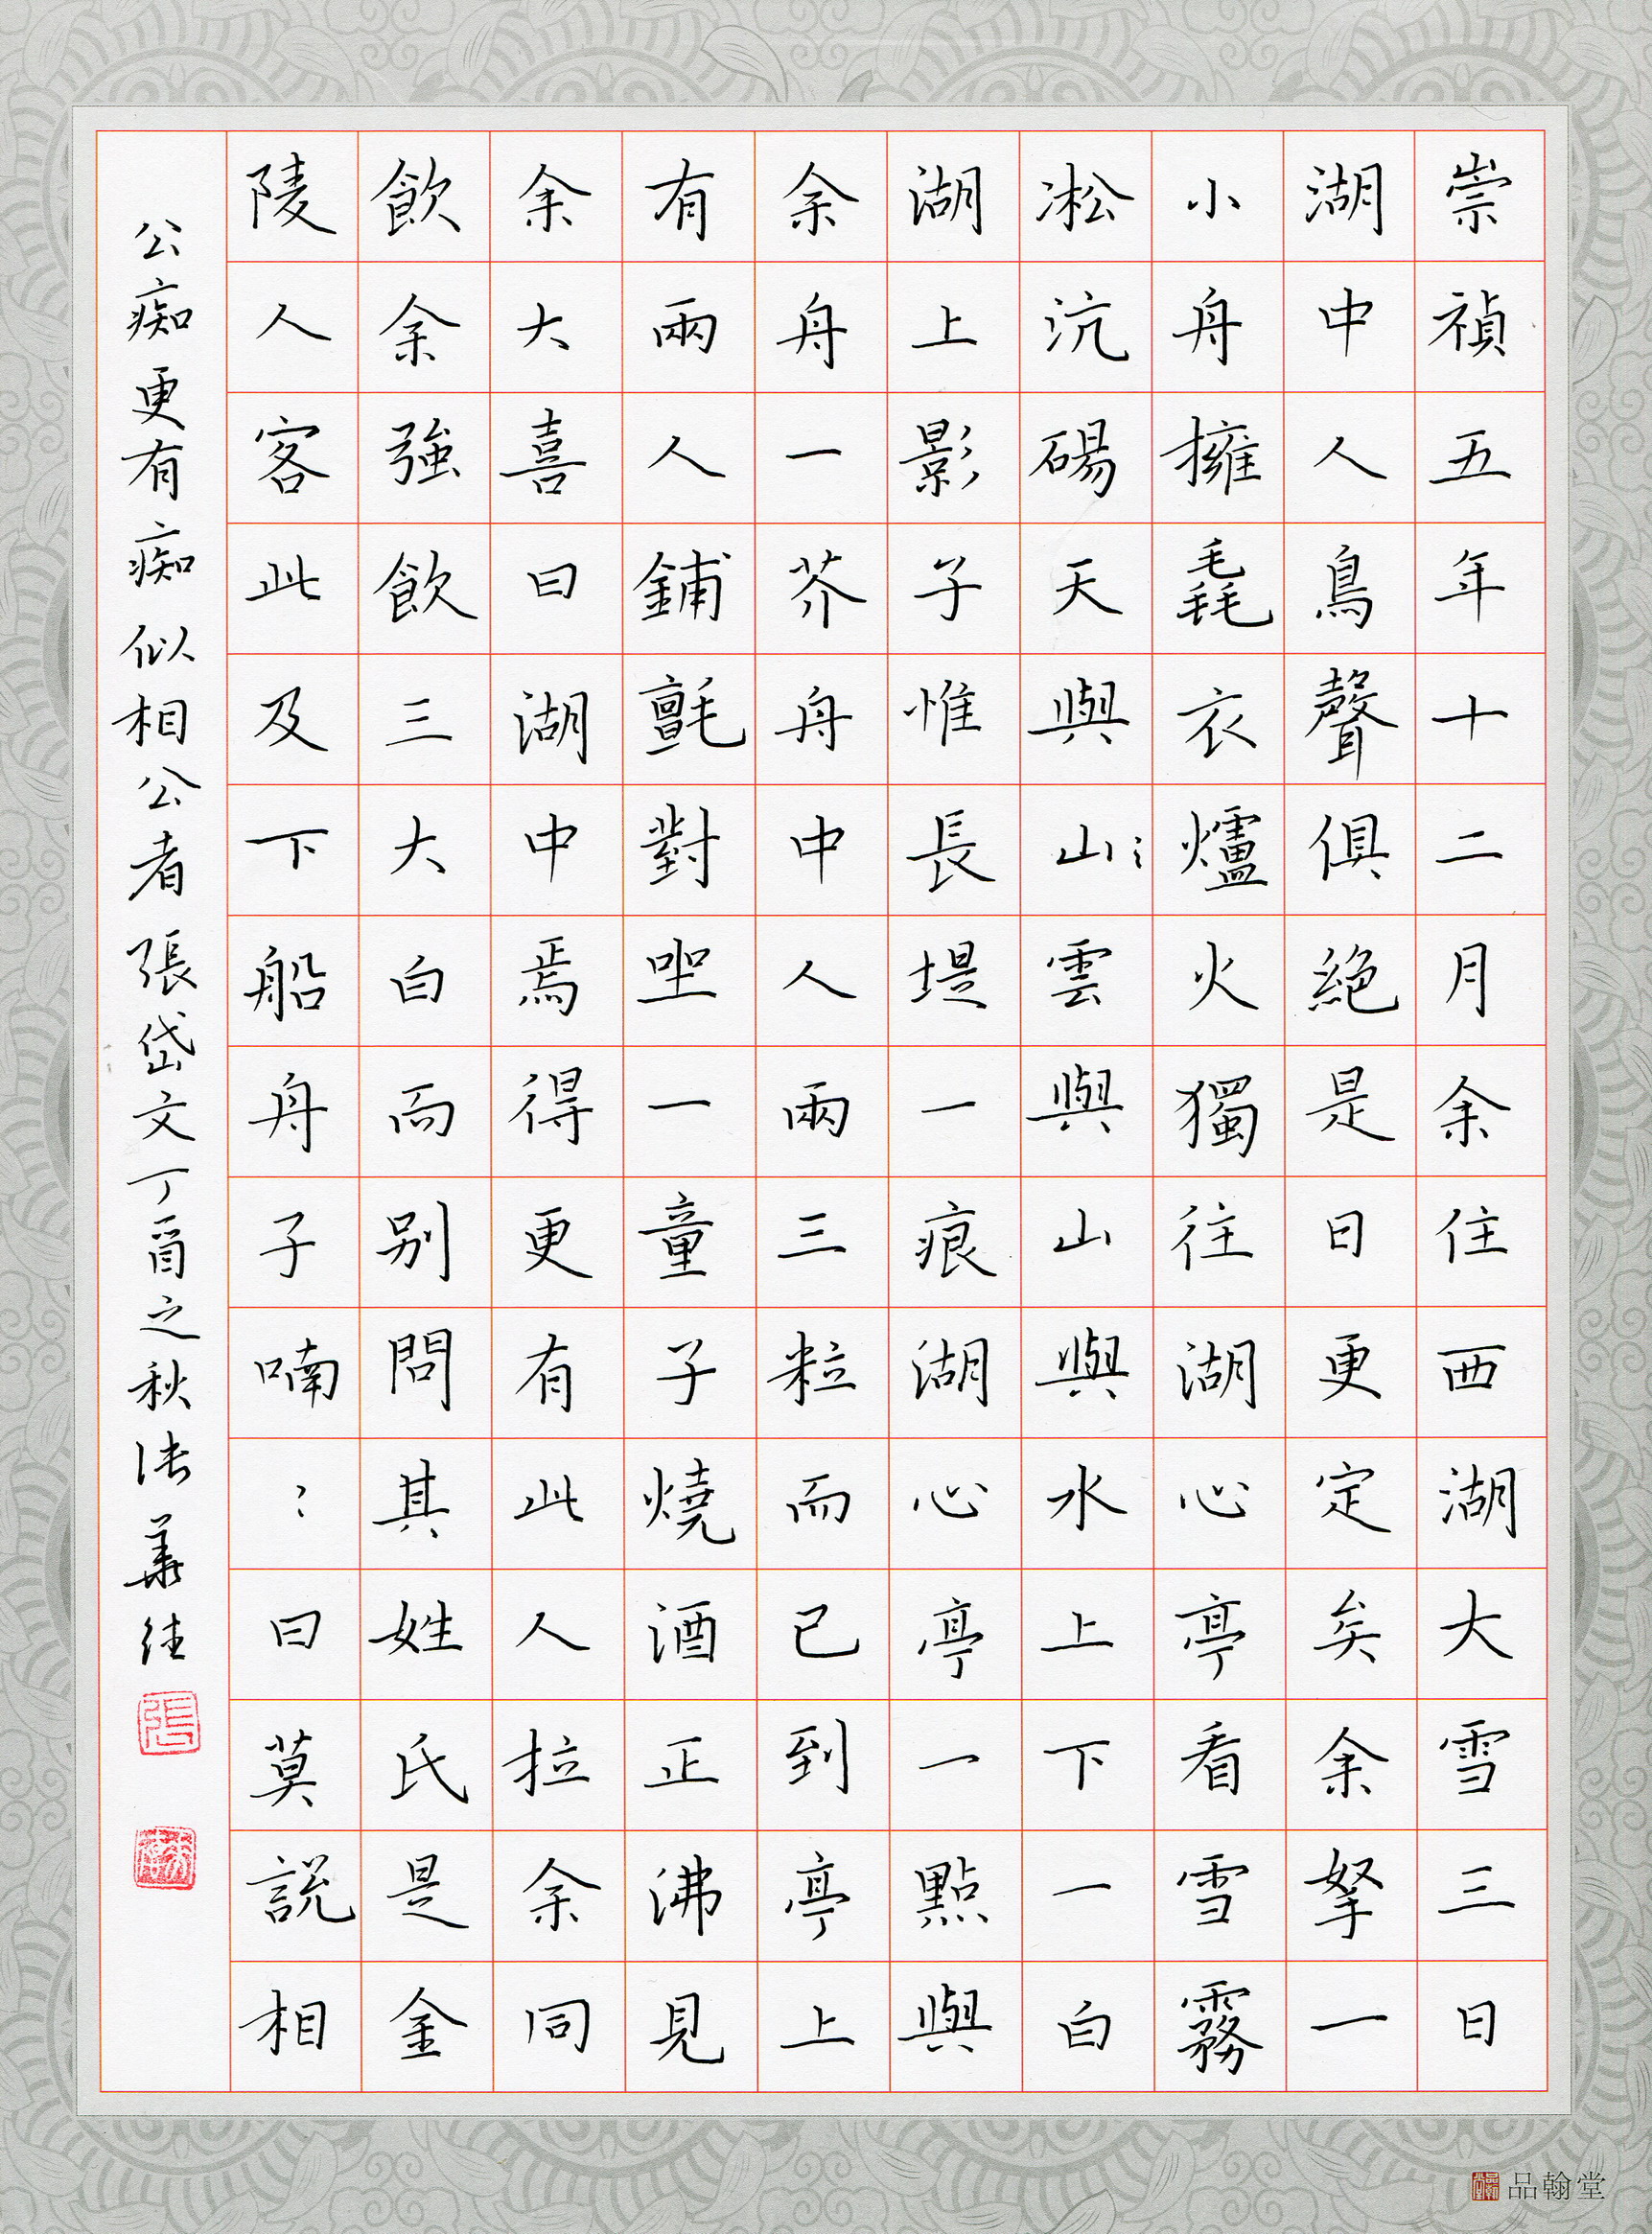 崇禎五年十二月余住西湖大雪三日
湖中人鳥聲俱絕是日更定矣余拏一
小舟擁毳衣爐火獨往湖心亭看雪霧
凇沆碭天與山〻雲與山與水上下一白
湖上影子惟長堤一痕湖心亭一點與
余舟一芥舟中人兩三粒而已到亭上
有兩人鋪氈對坐一童子燒酒正沸見
余大喜曰湖中焉得更有此人拉余同
飲余強飲三大白而別問其姓氏是金
陵人客此及下船舟子喃〻曰莫說相
公痴更有痴似相公者張岱文丁酉之秋張華
張
品翰堂